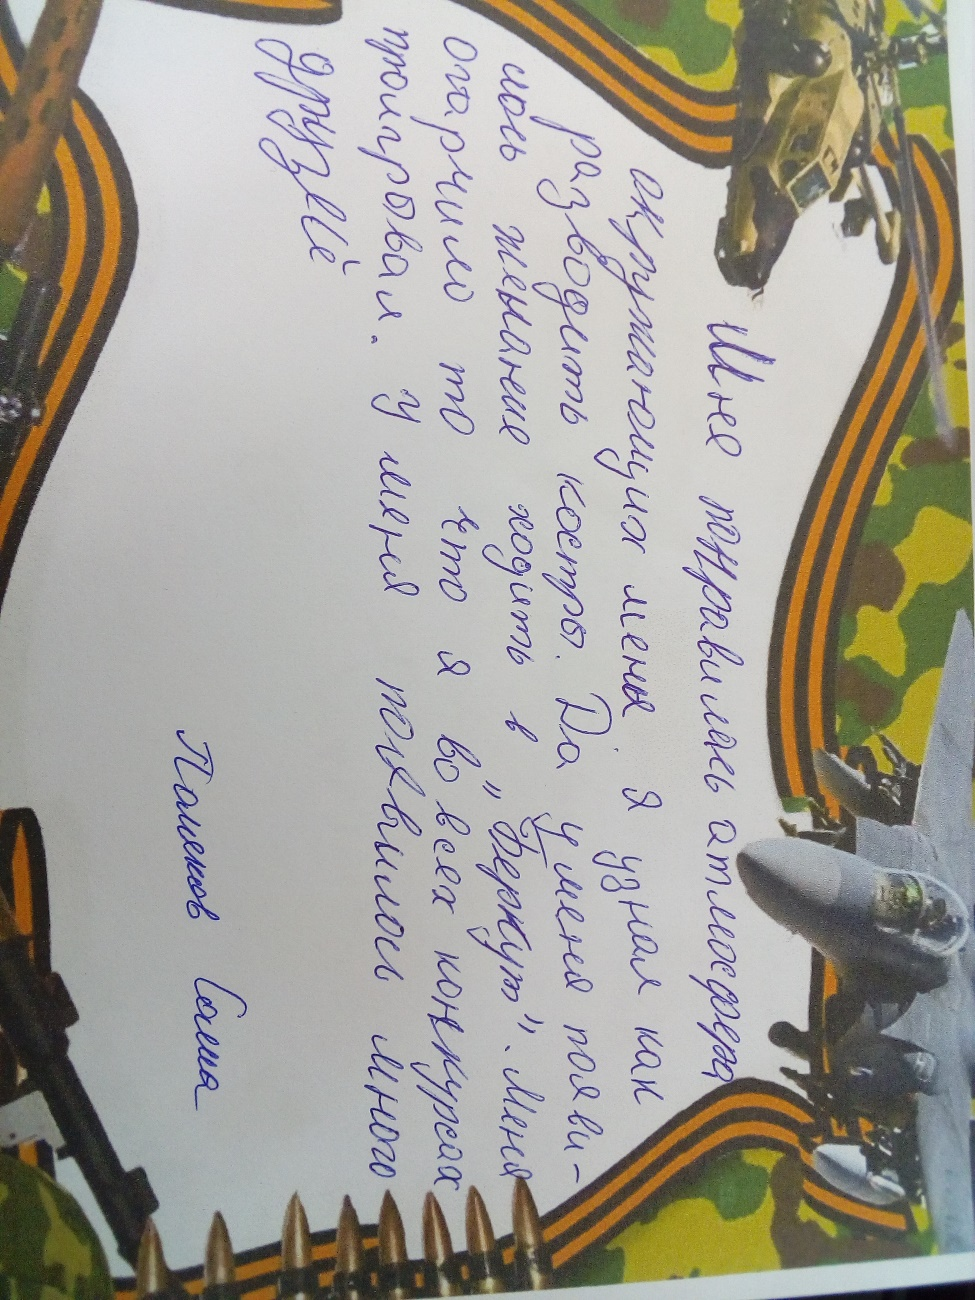 Мне понравилась атмосфера
окружающих меня я узнал как
разводить костры. Да у меня появи-
лось желание ходить в "Беркут". Меня
огорчило то что я во всех конкурсах
проигровал. У меня поевилось много
друзей
Саша